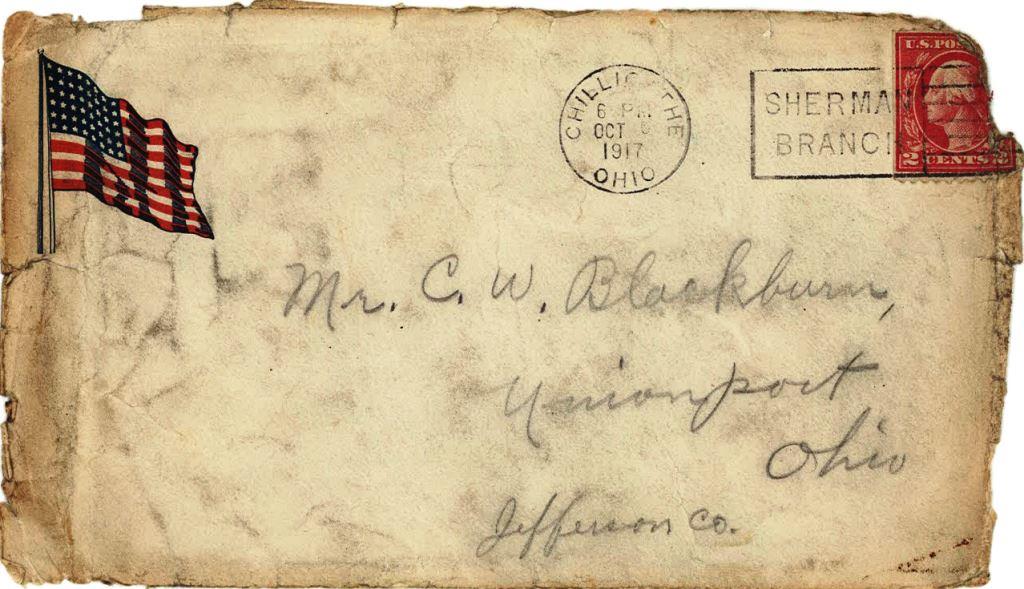 CHILLICOTHE
6 PM
OCT
1917
OHIO
SHERMAN
BRANCH
U.S. PO
2 CENTS 2
Mr. C. W. Blackburn,
Unionport
Ohio
Jefferson Co.